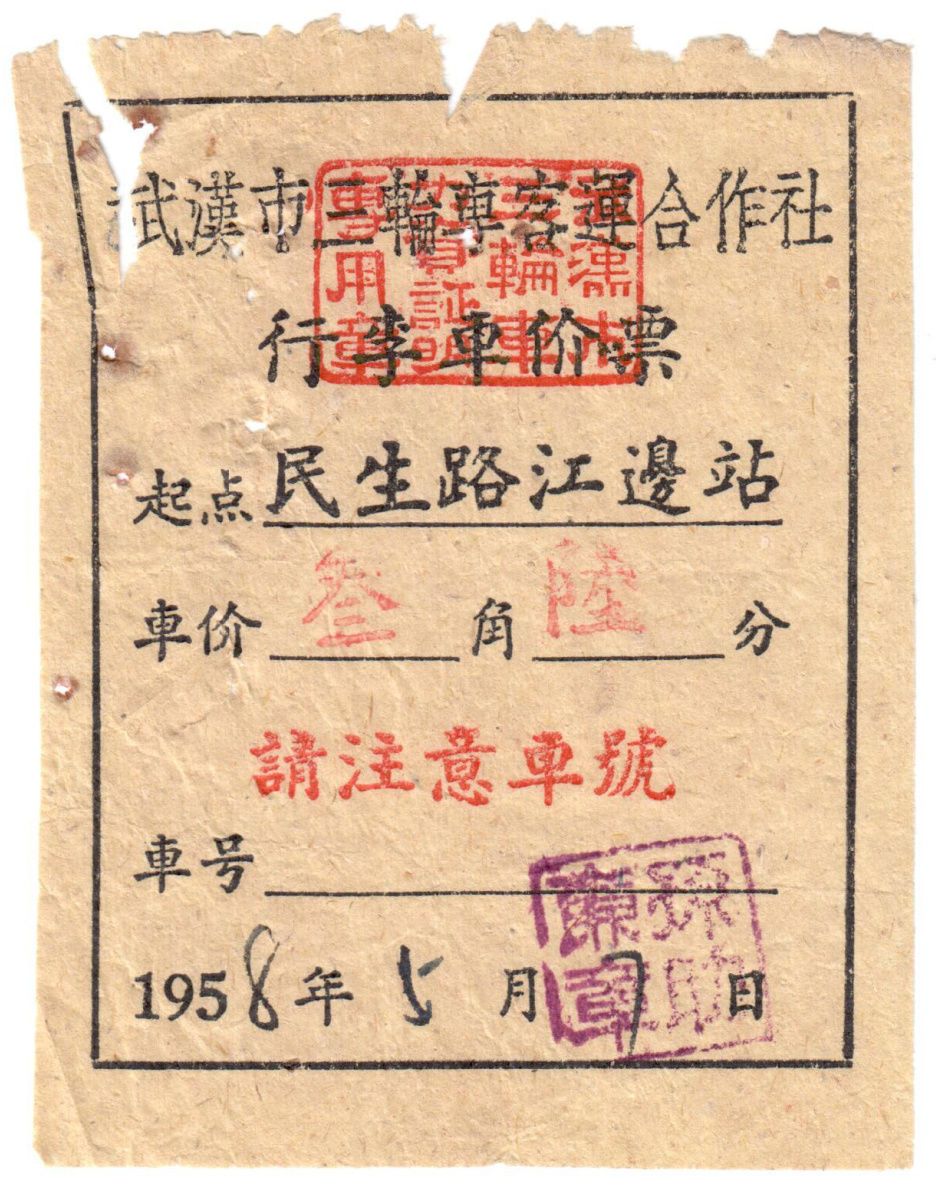 武漢市三輪車客運合作社
行李車价票
起点民生路江邊站
車价 叁 角 陸 分
請注意車號
車号
1958年5月7日